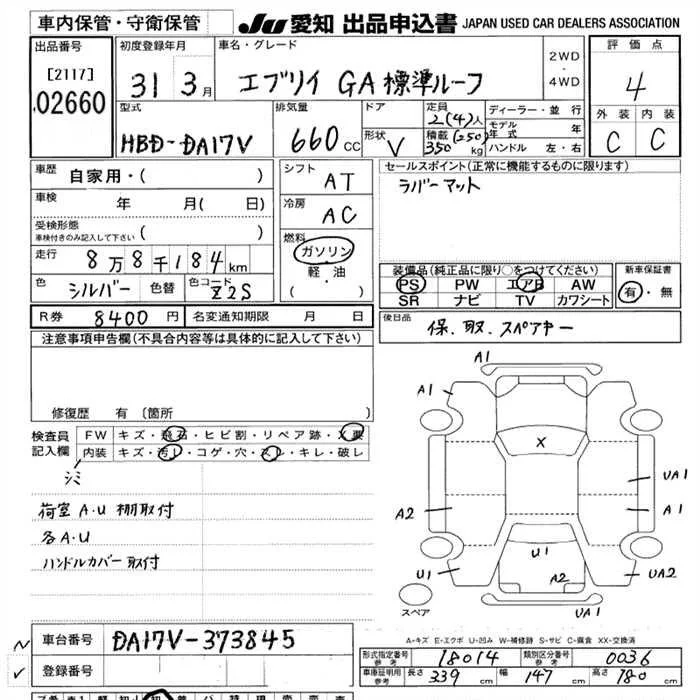 車内保管・守衛保管 JU 愛知 出品申込書 JAPAN USED CAR DEALERS ASSOCIATION
出品番号 初度登録年月 車名・グレード 2WD・4WD 評価点
[2117] 02660 31 3月 エブリイ GA 標準ルーフ 4
型式 排気量 ドア 定員 2(4)人 ディーラー・並行 外装 内装
HBD-DA17V 660cc 形状 V 積載 (250) 350kg モデル年式 年 C C
ハンドル 左・右
車歴 自家用・( ) シフト AT セールスポイント(正常に機能するものに限ります)
車検 年 月( 日) 冷房 AC ラバーマット
受検形態 車検付きのみ記入して下さい ( ) 燃料 ガソリン・軽油・( )
走行 8万8千184km 装備品(純正品に限り○をつけてください) 新車保証書
色 シルバー 色替 色コード Z2S PS PW エアB AW 有・無
SR ナビ TV カワシート
R券 8400円 名変通知期限 月 日 後日品 保、取、スペアキー
注意事項申告欄(不具合内容等は具体的に記入して下さい)
修復歴 有 〔箇所 〕
検査員記入欄 FW キズ・飛石・ヒビ割・リペア跡・X要
内装 キズ・汚レ・コゲ・穴・スレ・キレ・破レ
シミ
荷室 A・U 棚取付
各A・U
ハンドルカバー取付
A1
A1
X
UA1
A2
A1
U1
U1
A2
UA2
UA1
スペア
A-キズ E-エクボ U-凹み W-補修跡 S-サビ C-腐食 XX-交換済
車台番号 DA17V-373845
登録番号
形式指定番号 参考 18014 類別区分番号 参考 0036
車庫証明用 参考 長さ 339 幅 147 高さ 180